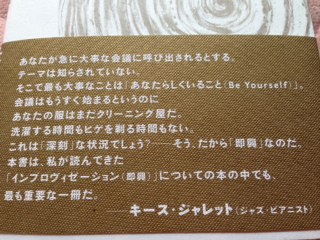 あなたが急に大事な会議に呼び出されるとする。
テーマは知らされていない。
そこで最も大事なことは「あなたらしくいること（Be Yourself）」。
会議はもうすぐ始まるというのに
あなたの服はまだクリーニング屋だ。
洗濯する時間もヒゲを剃る時間もない。
これは「深刻」な状況でしょう?——そう、だから「即興」なのだ。
本書は、私が読んできた
「インプロヴィゼーション（即興）」についての本の中でも、
最も重要な一冊だ。
——キース・ジャレット（ジャズ・ピアニスト）